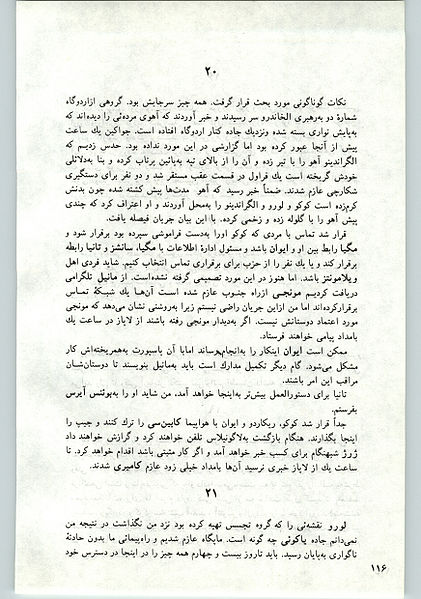 ۲۰
نکات گوناگونی مورد بحث قرار گرفت. همه چیز سرجایش بود. گروهی ازاردوگاه
شمارهٔ دو به‌رهبری الخاندرو سر رسیدند و خبر آوردند که آهوی مرده‌ئی را دیده‌اند که
به‌پایش نواری بسته شده ونزدیك جاده کنار اردوگاه افتاده است. جواکین یك ساعت
پیش از آنجا عبور کرده بود اما گزارشی در این مورد نداده بود. حدس زدیم که
الگراندینو آهو را با تیر زده و آن را از بالای تپه به‌پائین پرتاب کرده و بنا به‌دلائلی
خودش گریخته است یك قراول در قسمت عقب مستقر شد و دو نفر برای دستگیری
شکارچی عازم شدند. ضمناً خبر رسید که آهو مدت‌ها پیش کشته شده چون بدنش
کرم‌زده است کوکو و لورو و الگراندینو را به‌محل آوردند و او اعتراف کرد که چندی
پیش آهو را با گلوله زده و زخمی کرده. با این بیان جریان فیصله یافت.
قرار شد تماس با مردی که کوکو اورا به‌دست فراموشی سپرده بود برقرار شود و
مگیا رابط بین او و ایوان باشد و مسئول ادارهٔ اطلاعات با مگیا، سانشز و تانیا رابطه
برقرار کند و یا یك نفر را از حزب برای برقراری تماس انتخاب کنیم. شاید فردی اهل
ویلامونتز باشد. اما هنوز در این مورد تصمیمی گرفته نشده‌است. از مانیل تلگرامی
دریافت کردیم مونجی ازراه جنوب عازم شده است آن‌ها یك شبکهٔ تماس
برقرارکرده‌اند اما من ازاین جریان راضی نیستم زیرا به‌روشنی نشان می‌دهد که مونجی
مورد اعتماد دوستانش نیست. اگر به‌دیدار مونجی رفته باشند از لاپاز در ساعت یك
بامداد پیامی خواهند فرستاد.
ممکن است ایوان اینکار را به‌انجام‌برساند امابا آن پاسپورت به‌هم‌ریخته‌اش کار
مشکل می‌شود. گام دیگر تکمیل مدارك است باید به‌مانیل بنویسند تا دوستان‌شان
مراقب این امر باشند.
تانیا برای دستورالعمل بیش‌تر به‌اینجا خواهد آمد، من شاید او را به‌بوئنس آیرس
بفرستم.
جداً قرار شد کوکو، ریکاردو و ایوان با هواپیما کابین‌سی را ترك کنند و جیپ را
اینجا بگذارند. هنگام بازگشت به‌لاگونیلاس تلفن خواهند کرد و گزارش خواهند داد
ژورژ شبهنگام برای کسب خبر خواهد آمد و اگر کار مثبتی باشد اقدام خواهد کرد. تا
ساعت یك از لاپاز خبری نرسید آن‌ها بامداد خیلی زود عازم کامیری شدند.
۲۱
لورو نقشه‌ئی را که گروه تجسس تهیه کرده بود نزد من نگذاشت در نتیجه من
نمی‌دانم جاده یاکوئی چه گونه است. مابگاه عازم شدیم و راه‌پیمائی ما بدون حادثهٔ
ناگواری به‌پایان رسید. باید تاروز بیست و چهارم همه چیز را در اینجا در دسترس خود
۱۱۶